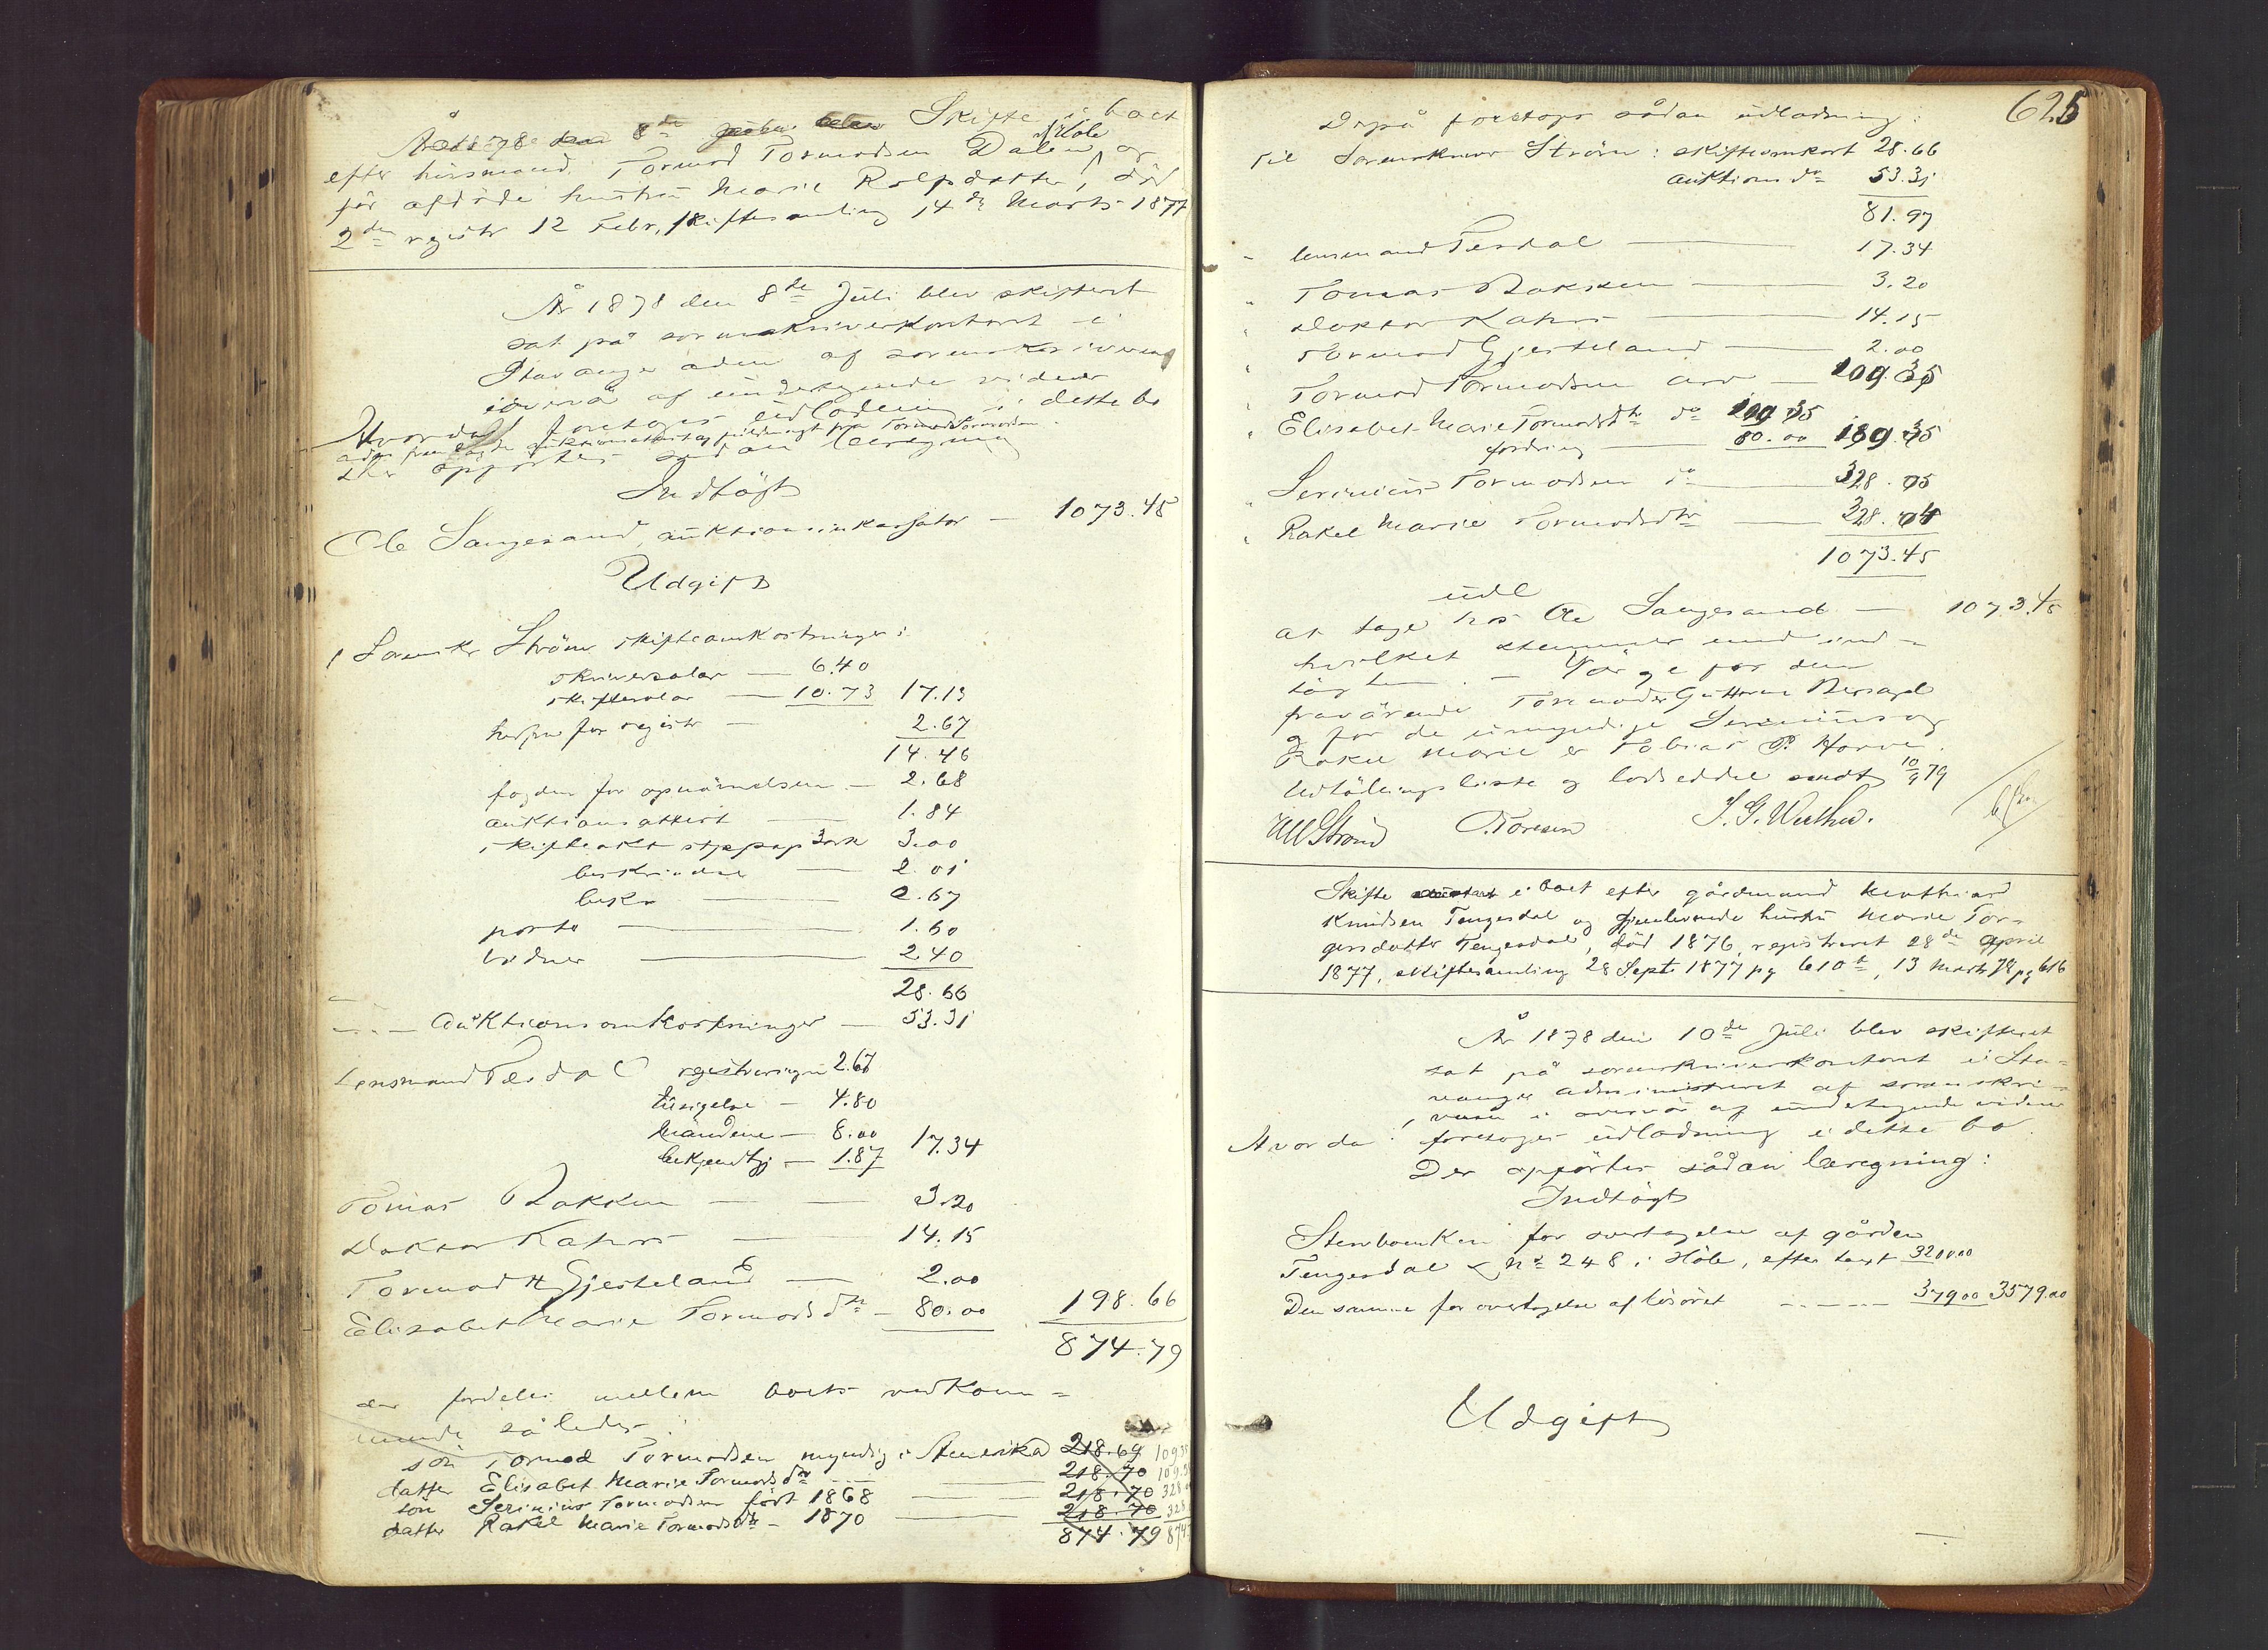 Året 1878 den 8de Skifte i boet
efter husmand Tormod Tormodsen Dalen, i Høle og
før afdøde hustru Marie Rolfsdatter, død
2den registr 12 Febr, skiftesamling 14de Marts 1877
År 1878 den 8de Juli blev skifteret
sat på sorenskriverkontoret i
Stavanger adm af sorenskriveren
i overvær af undertegnede vidner
Hvorda foretoges udlodning i dette bo
auktions fra Tormod Tormodsen
Der opførtes sådan beregning
Indtægt
Ole Sangesand, auktionsinkassator — 1073.45
Udgift
1 Sorenskr Ström skifteomkostninger:
skriversalær — 6.40
skiftesalær — 10.73 17.13
for registr — 2.67
14.46
fogden for opnævnelsen — 2.68
auktionsattest — 1.84
skifteakt stppap 3 ark 3.00
beskrivelse — 2.01
beskr — 2.67
porto — 1.60
vidner — 2.40
28.66
" — auktionsomkostninger — 53.31
Lensmand Tesdal registreringen 2.67
tilsigelse — 4.80
mændene — 8.00 17.34
bekjendtgj — 1.87
Tomas Bakken — 3.20
Doktor Kahrs — 14.15
Tormod H Gjesteland — 2.00
Elisabet Marie Tormodsdtr — 80.00 198.66
874.79
der fordeles mellem boets vedkom=
mende således:
sön Tormod Tormodsen myndig i Amerika 218.69 109.35
datter Elisabet Marie Tormodsdtr — 218.70 109.35
sön Serinius Tormodsen født 1868 — 218.70 328
datter Rakel Marie Tormodsdtr — 1870 — 218.70 328
874.79 874
625
Derpå foretoges sådan udlodning:
Til Sorenskriver Ström: skifteomkost 28.66
auktions do 53.31
81.97
" lensmand Tesdal — 17.34
" Tomas Bakken — 3.20
" Doktor Kahrs — 14.15
" Tormod Gjesteland — 2.00
" Tormod Tormodsen arv — 109.35
" Elisabet Marie Tormodsdtr do 109.35
fordring — 80.00 189.35
" Serinius Tormodsen do — 328.05
" Rakel Marie Tormodsdtr — 328.04
1073.45
udl
at tage hos Ole Sangesand — 1073.45
hvilket stemmer med ind=
tægten. — Værge for den
fraværende Tormod er Guttorm Bersagel
og for de umyndige Serinius og
Rakel Marie er Tobias P. Horve.
Udlodningsliste og lodseddel sendt 10/9 79
WStröm O.Toresen S. G. Werthus.
Skifte i boet efter gårdmand Mathias
Knudsen Tengesdal og gjenlevende hustru Marie Tor=
gersdatter Tengesdal, död 1876, registreret 28de April
1877, skiftesamling 28 Sept. 1877 pg 610t, 13 Marts 78 pg 616
År 1878 den 10de Juli blev skifteret
sat på sorenskriverkontoret i Sta=
vanger administreret af sorenskri=
veren i overvær af undertegnede vidner
Hvorda: foretoges udlodning i dette bo.
Der opførtes sådan beregning:
Indtægt
Stervboenken for overtagelse af gården
Tengesdal L No 248 i Höle, efter taxt 3200.00
Den samme for overtagelse af løsöret — 379.00 3579.00
Udgift